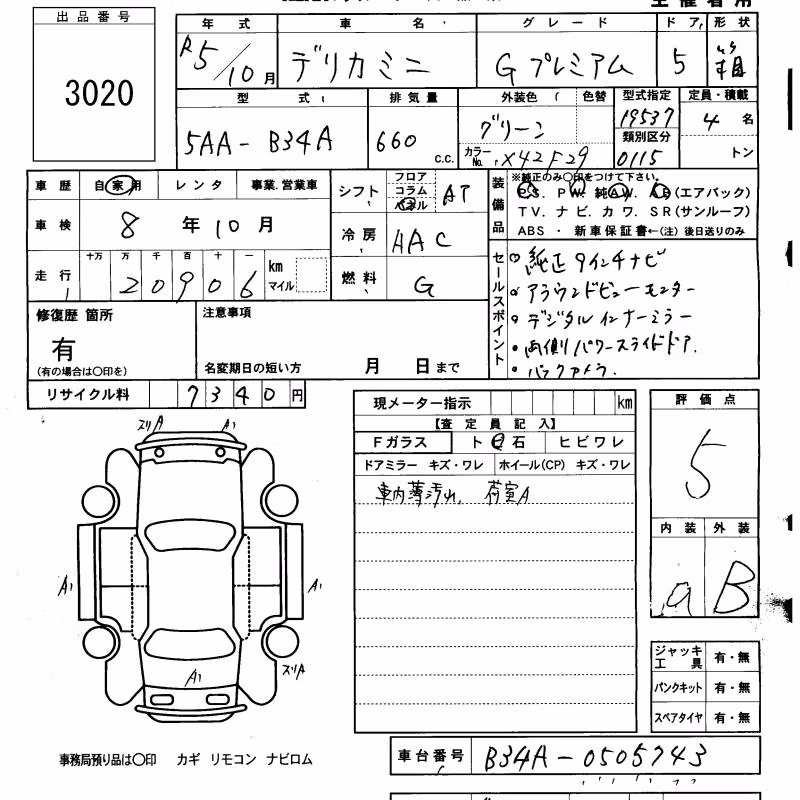 出品番号
3020
年式 車名 グレード ドア 形状
R5/10月 デリカミニ G プレミアム 5 箱
型式 排気量 外装色 色替 型式指定 定員・積載
5AA-B34A 660 c.c. グリーン 19537 4名
類別区分
カラーNo. X42F29 0115 トン
車歴 自家用 レンタ 事業.営業車
シフト フロア コラム パネル AT
車検 8年10月
冷房 AAC
走行 十万 万 千 百 十 一
20906 km マイル
燃料 G
装備品
※純正のみ〇印をつけて下さい。
P.S. P.W. 純A.W. A.B(エアバック)
T V. ナビ. カワ. S R(サンルーフ)
ABS ・ 新車保証書←(注) 後日送りのみ
セールスポイント
純正9インチナビ
アラウンドビューモニター
デジタルインナーミラー
・両側パワースライドドア.
・バックカメラ.
修復歴 箇所 注意事項
有
(有の場合は〇印を) 名変期日の短い方 月 日まで
リサイクル料 7340円
現メーター指示 km
【査定員記入】
Fガラス ト 石 ヒビワレ
ドアミラー キズ・ワレ ホイール(CP) キズ・ワレ
車内薄汚れ. 荷室A
評価点
5
内装 外装
a B
スリA A1
A1 A1
A1 スリA
ジャッキ工具 有・無
パンクキット 有・無
スペアタイヤ 有・無
事務局預り品は〇印 カギ リモコン ナビロム
車台番号 B34A-0505743